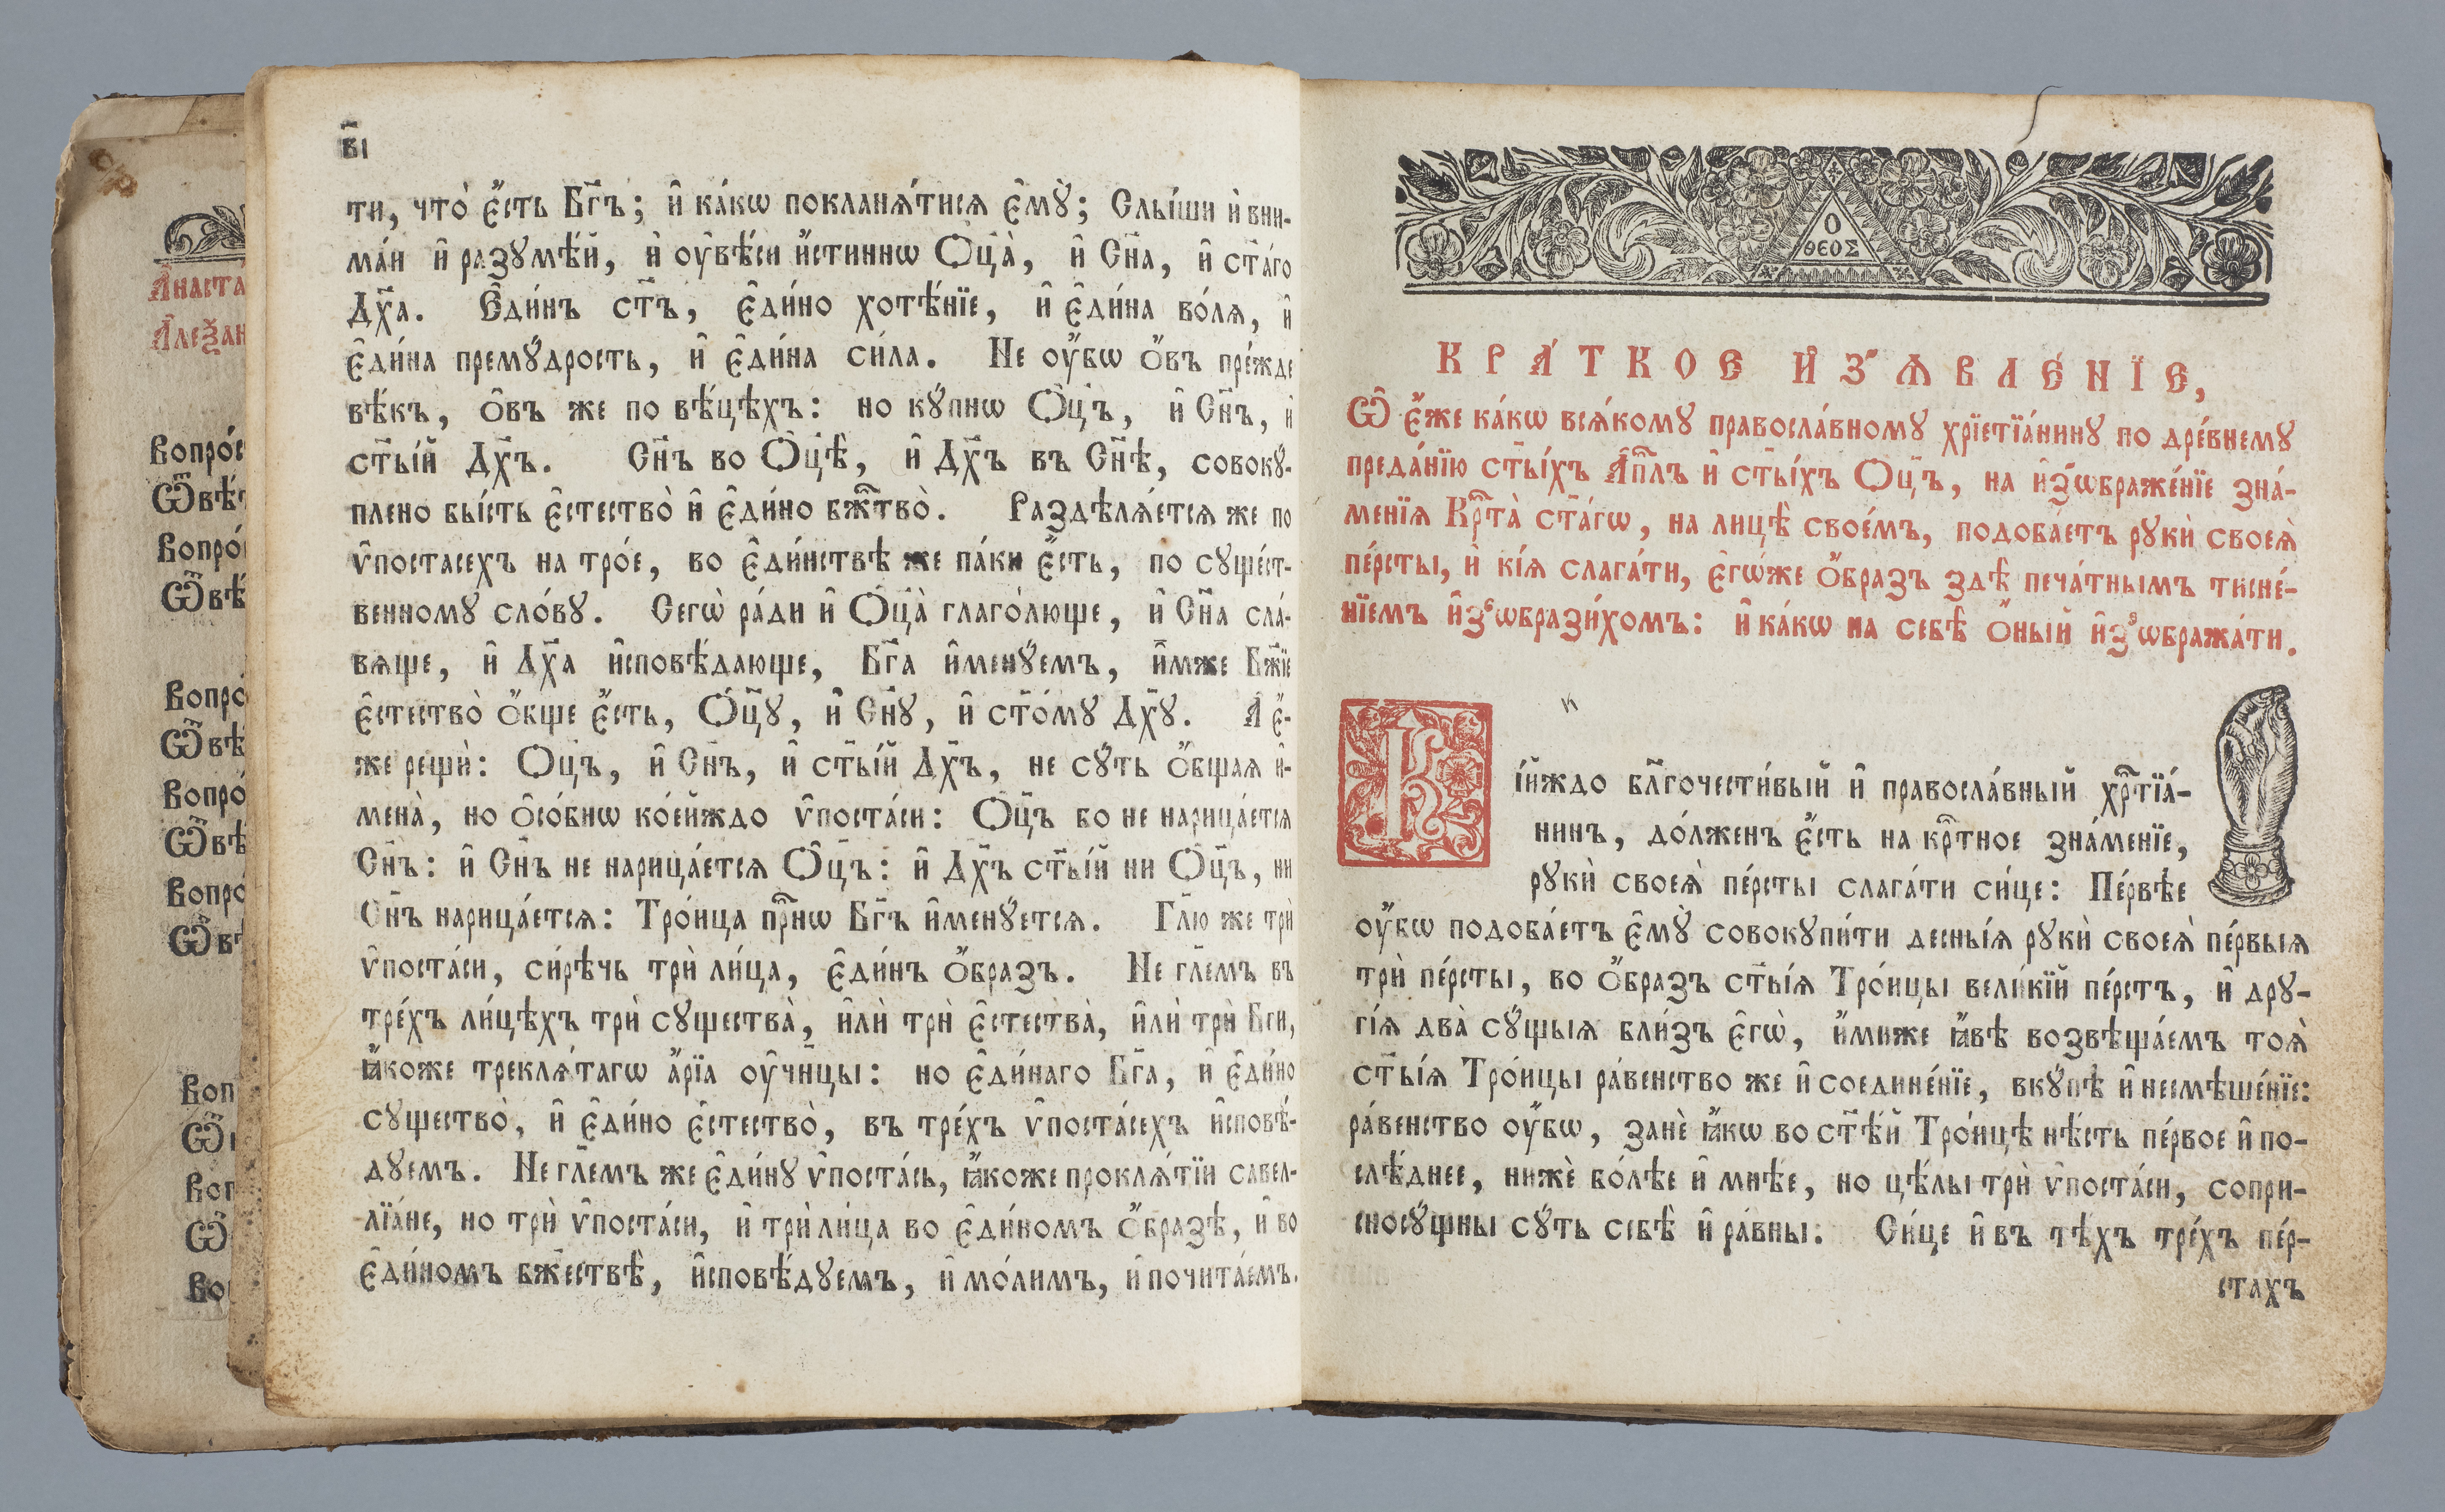 Анаста
Алеѯан
Вопро́с
Ѿвѣ́т
Вопро́
Ѿвѣ́
Вопро́
Ѿвѣ́
Вопро́
Ѿвѣ́
Вопро́
Ѿвѣ
Воп
Ѿ
Воп
Ѿ
Во
в҃і
ти, что̀ є҆́сть Бг҃ъ; и҆ ка́кѡ покланѧ́тисѧ є҆мꙋ̀; Слы́ши и҆ вни-
ма́й и҆ разꙋмѣ́й, и҆ оу҆вѣ́си и҆́стиннѡ Ѻ҆ц҃а̀, и҆ Сн҃а, и҆ ст҃а́го
Дх҃а. Є҆ди́нъ ст҃ъ, є҆ди́но хотѣ́нїе, и҆ є҆ди́на во́лѧ, и҆
є҆ди́на премꙋ́дрость, и҆ є҆ди́на си́ла. Не оу҆́бѡ ѻ҆́въ пре́жде
вѣ́къ, ѻ҆́въ же по вѣ́цѣхъ: но кꙋ́пнѡ Ѻ҆ц҃ъ, и҆ Сн҃ъ, и҆
ст҃ы́й Дх҃ъ. Сн҃ъ во Ѻ҆ц҃ѣ̀, и҆ Дх҃ъ въ Сн҃ѣ, совокꙋ́-
плено бы́сть є҆стество̀ и҆ є҆ди́но бж҃тво̀. Раздѣлѧ́етсѧ же по
ѵ҆постасехъ на тро́е, во є҆ди́нствѣ же па́ки є҆́сть, по сꙋще́ст-
венномꙋ сло́вꙋ. Сегѡ̀ ра́ди и҆ Ѻ҆ц҃а̀ глаго́люще, и҆ Сн҃а сла́-
вѧще, и҆ Дх҃а и҆сповѣ́дающе, Бг҃а и҆менꙋ́емъ, и҆́мже Бж҃їе
є҆стество̀ ѻ҆́бще є҆́сть, Ѻ҆ц҃ꙋ̀, и҆ Сн҃ꙋ, и҆ ст҃о́мꙋ Дх҃ꙋ. А҆ є҆́-
же рещѝ: Ѻц҃ъ, и҆ Сн҃ъ, и҆ ст҃ы́й Дх҃ъ, не сꙋ́ть ѻ҆́бщаѧ и҆-
мена̀, но ѻ҆со́бнѡ ко́ейждо ѵ҆поста́си: Ѻ҆ц҃ъ бо не нарица́етсѧ
Сн҃ъ: и҆ Сн҃ъ не нарица́етсѧ Ѻ҆ц҃ъ: и҆ Дх҃ъ ст҃ы́й ни Ѻ҆ц҃ъ, ни
Сн҃ъ нарица́етсѧ: Тро́ица пр҇нѡ Бг҃ъ и҆менꙋ́етсѧ. Гл҃ю же трѝ
ѵ҆поста́си, си́рѣчь трѝ ли́ца, є҆ди́нъ ѻ҆́бразъ. Не гл҃емъ въ
тре́хъ ли́цѣхъ трѝ сꙋщества̀, и҆лѝ трѝ є҆стества̀, и҆лѝ трѝ Бг҃и,
ꙗ҆́коже треклѧ́тагѡ а҆́рїа оу҆чн҃цы: но є҆ди́наго Бг҃а, и҆ є҆ди́но
сꙋщество̀, и҆ є҆ди́но є҆стество̀, въ тре́хъ ѵ҆поста́сехъ и҆сповѣ́-
дꙋемъ. Не гл҃емъ же є҆ди́нꙋ ѵ҆поста́сь, ꙗ҆́коже проклѧ́тїи савел-
лїа́не, но трѝ ѵ҆поста́си, и҆ трѝ ли́ца во є҆ди́номъ ѻ҆́бразѣ, и҆ во
є҆ди́номъ бж҃ествѣ̀, и҆сповѣ́дꙋемъ, и҆ мо́лимъ, и҆ почита́емъ.
Ο
ΘΕΟΣ
КРА́ТКОЕ И҆З̾ѦВЛЕ́НЇЕ,
Ѡ҆ є҆́же ка́кѡ всѧ́комꙋ правосла́вномꙋ хрїстїа́нинꙋ по дре́внемꙋ
преда́нїю ст҃ы́хъ А҆п҇лъ и҆ ст҃ы́хъ Ѻц҃ъ, на и҆з̾ѡбраже́нїе зна́-
менїѧ Кр҇та̀ ст҃а́гѡ, на лицѣ̀ свое́мъ, подобаетъ рꙋкѝ своеѧ̀
пе́рсты, и҆ кі́ѧ слага́ти, є҆гѡ́же ѻ҆́бразъ здѣ̀ печа́тнымъ тисне́-
нїемъ и҆з̾ѡбрази́хомъ: и҆ ка́кѡ на себѣ̀ ѻ҆́ный и҆з̾ѡбража́ти.
Кі́йждо бл҃гочести́вый и҆ правосла́вный хр҇тїа́-
нинъ, до́лженъ є҆́сть на кр҇тное зна́менїе,
рꙋкѝ своеѧ̀ пе́рсты слага́ти си́це: Пе́рвѣе
оу҆́бѡ подоба́етъ є҆мꙋ̀ совокꙋпи́ти десны́ѧ рꙋкѝ своеѧ̀ пе́рвыѧ
трѝ пе́рсты, во ѻ҆́бразъ ст҃ы́ѧ Тро́ицы вели́кїй пе́рстъ, и҆ дрꙋ-
гі́ѧ два̀ сꙋ́щыѧ бли́зъ є҆гѡ̀, и҆́миже ꙗ҆́вѣ возвѣща́емъ тоѧ̀
ст҃ы́ѧ Тро́ицы ра́венство же и҆ соедине́нїе, вкꙋ́пѣ и҆ несмѣше́нїе:
ра́венство оу҆́бѡ, занѐ ꙗ҆́кѡ во ст҃ѣ́й Тро́ицѣ нѣ́сть пе́рвое и҆ по-
слѣ́днее, нижѐ бо́лѣе и҆ мнѣ́е, но цѣ́лы трѝ ѵ҆поста́си, сопри-
сносꙋ́щны сꙋ́ть себѣ̀ и҆ ра́вны: Си́це и҆ въ тѣ́хъ тре́хъ пе́р-
стахъ